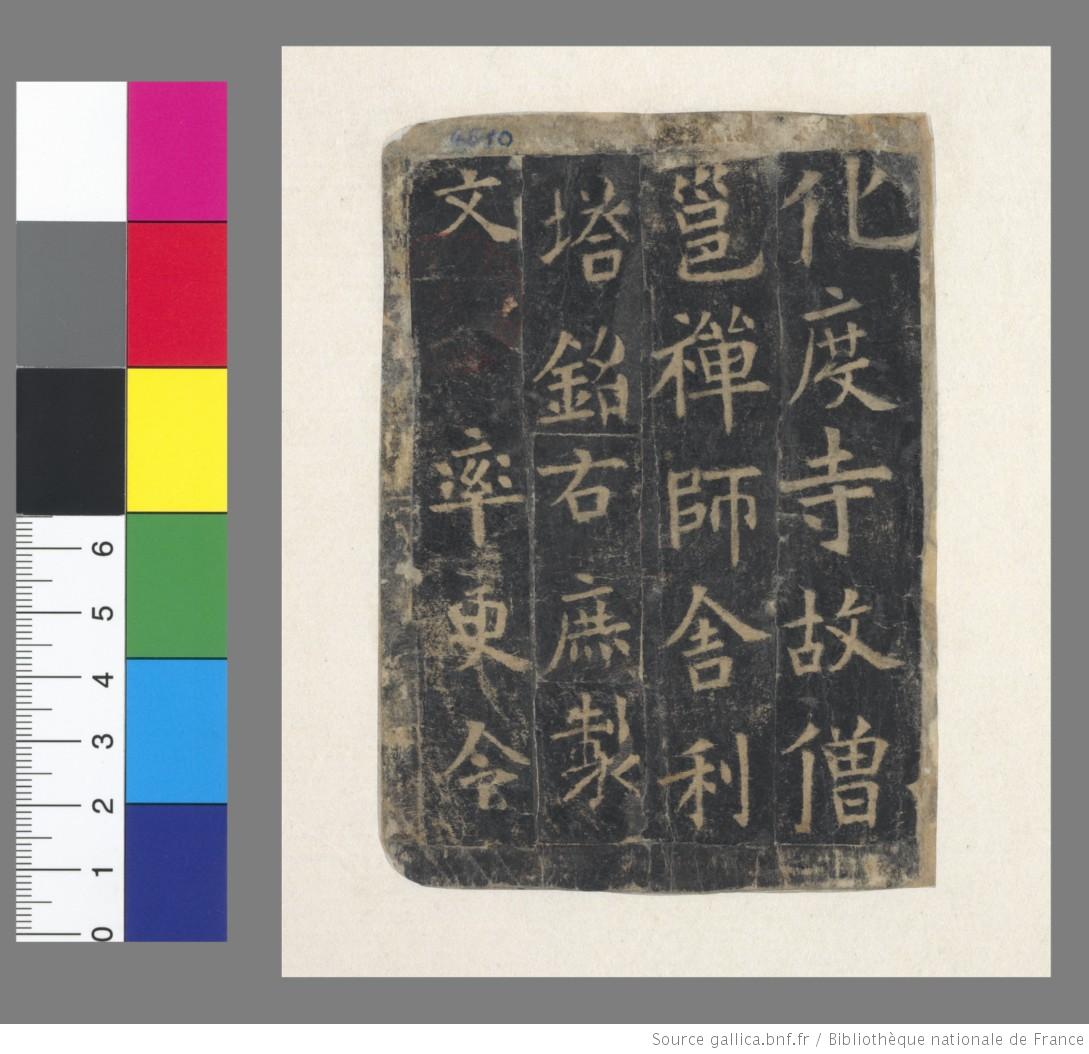 化度寺故僧
邕禪師舍利
塔銘右庶製
文 率更令
4510
6
5
4
3
2
1
0
Source gallica.bnf.fr / Bibliothèque nationale de France